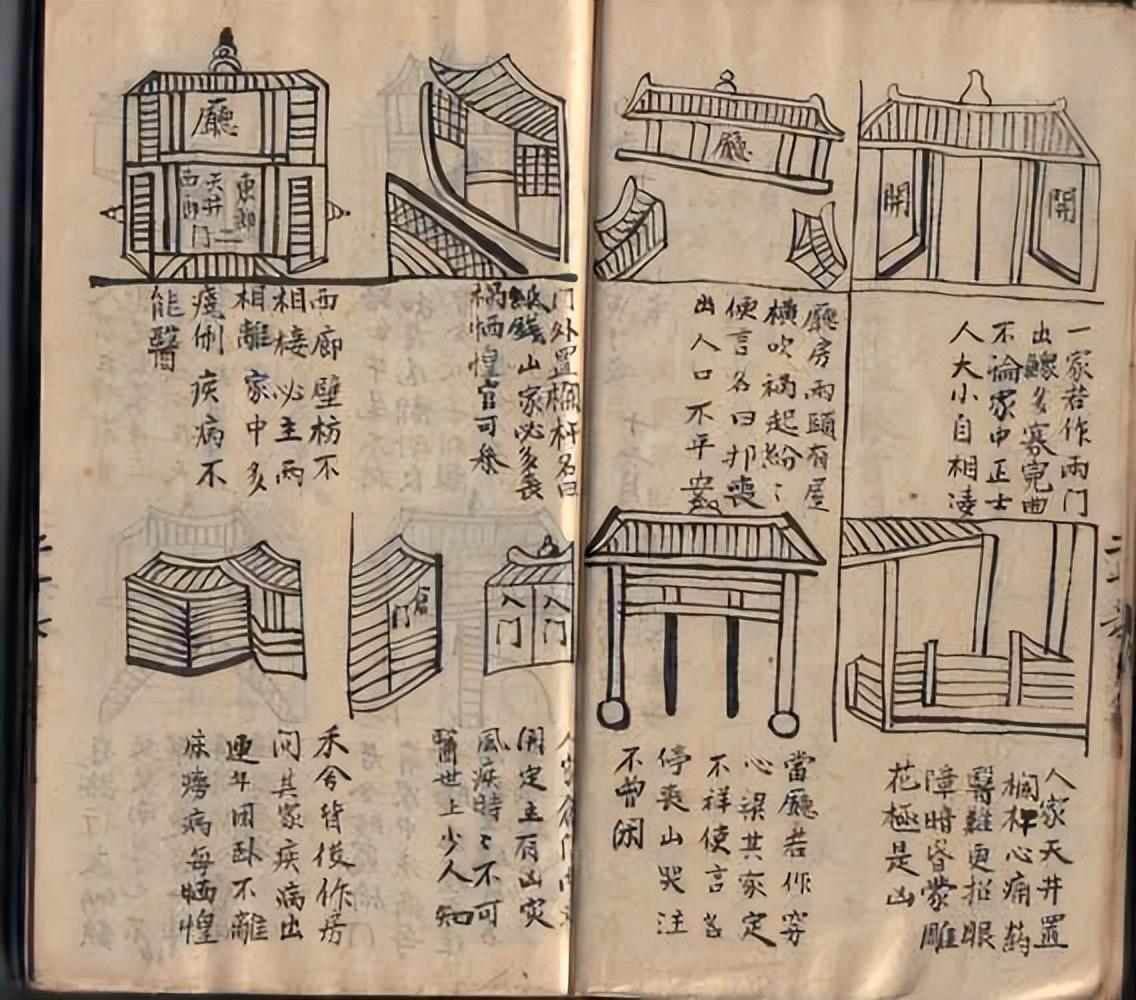 開
開
一家若作兩門
出鰥多寡寃曲
不論家中正士
人大小自相淩
廳
廳房兩頭有屋
橫吹禍起紛〻
便言名曰喪
出人口不平安
人家天井置
欄杆心痛葯
醫難更招眼
障暗昏蒙雕
花極是凶
當廳若作穿
心梁其家定
不祥便言名
停喪山哭注
不曾闲
門外置欄杆名曰
紙錢山家必多喪
禍恓惶官可參
廳
東廊
天井
西廊
二門
西廊壁枋不
相接必主兩
相離家中多
疾病不
能醫
入門
入門
倉門
開定主有凶災
風疾時〻不可
醫世上少人知
禾倉背後作房
間其家疾病出
連年困臥不離
床癆病每恓惶